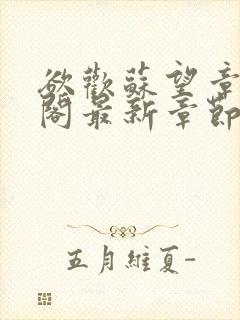 欲歡蘇望章
閣最新章節
五月維夏-